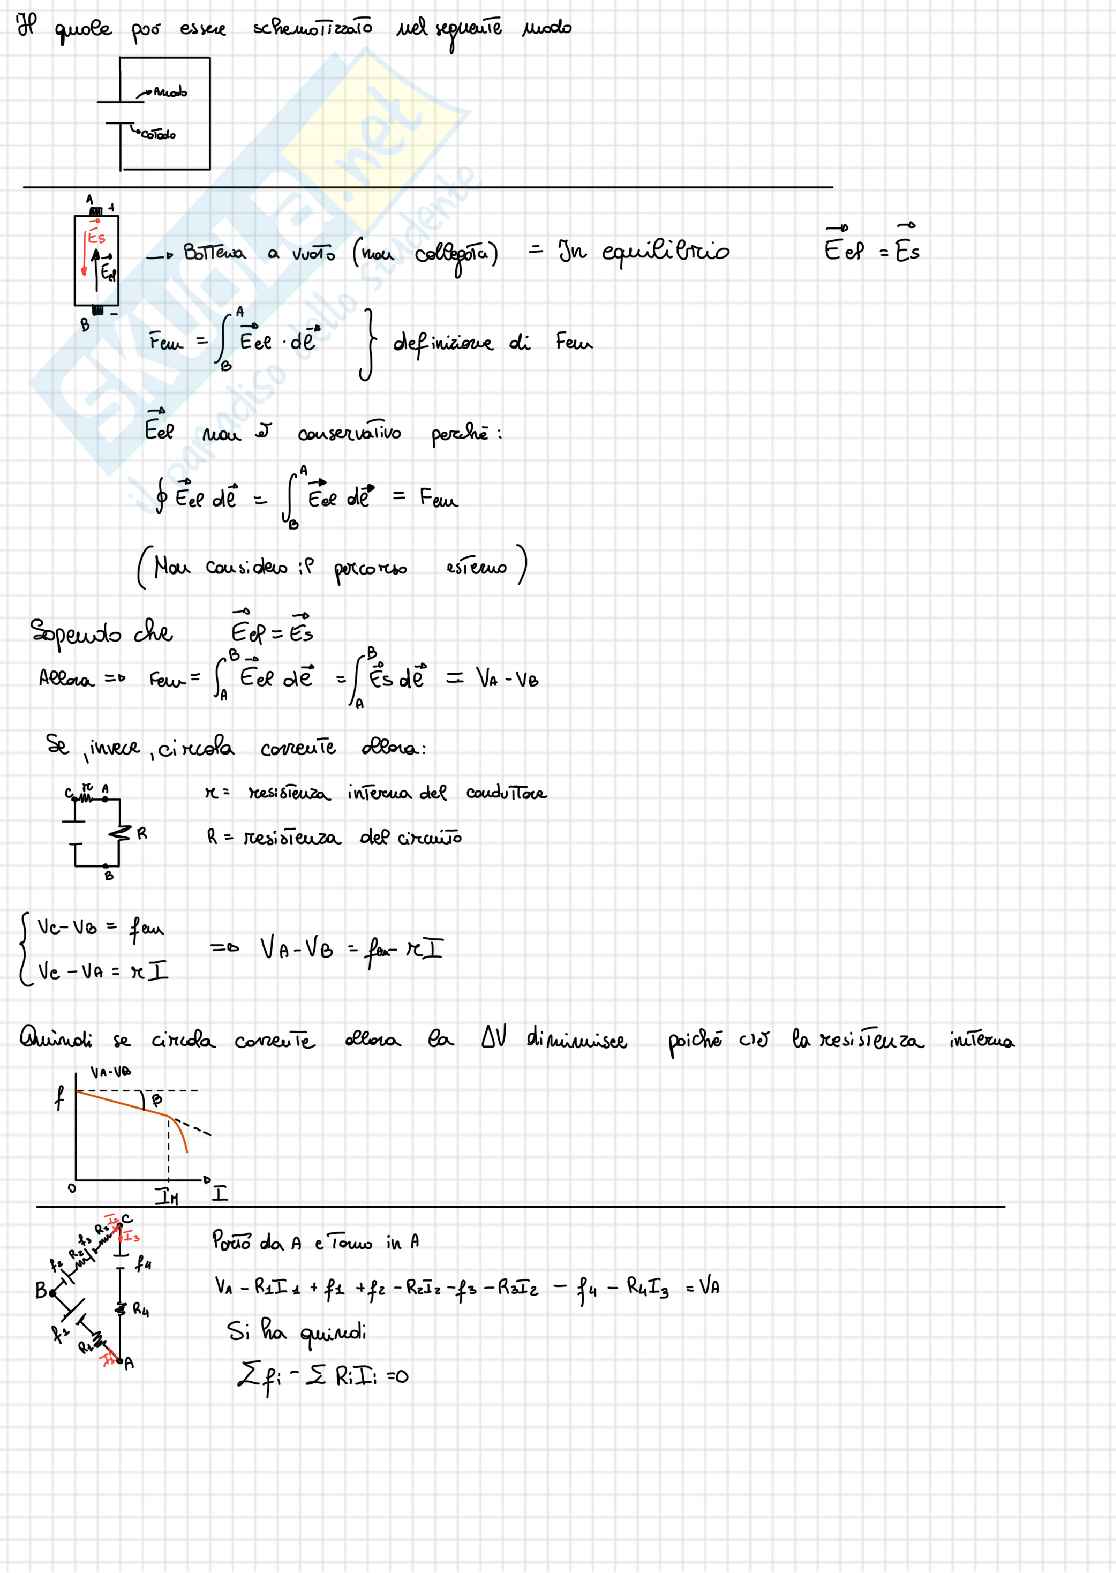 Il quale può essere schematizzato nel seguente modo
Anodo
Catodo
A +
Es
Eel
B -
→ Batteria a vuoto (non collegata) = In equilibrio Eel = Es
Fem = ∫_B^A Eel · dl } definizione di Fem
Eel non è conservativo perché:
∮ Eel dl = ∫_B^A Eel dl = Fem
(Non considero il percorso esterno)
Sapendo che Eel = Es
Allora => Fem = ∫_A^B Eel dl = ∫_A^B Es dl = VA - VB
Se, invece, circola corrente allora:
C r A
R
B
r = resistenza interna del conduttore
R = resistenza del circuito
{ Vc - VB = fem
Vc - VA = rI
=> VA - VB = fem - rI
Quindi se circola corrente allora la ΔV diminuisce poiché c'è la resistenza interna
VA - VB
f
β
0
IM
I
C
I2
I3
R3
f3
R2
f2
f4
B
R4
f1
R1
I1
A
Parto da A e Torno in A
VA - R1I1 + f1 + f2 - R2I2 - f3 - R3I2 - f4 - R4I3 = VA
Si ha quindi
Σfi - Σ RiIi = 0
SKUOLA.net
il paradiso dello studente